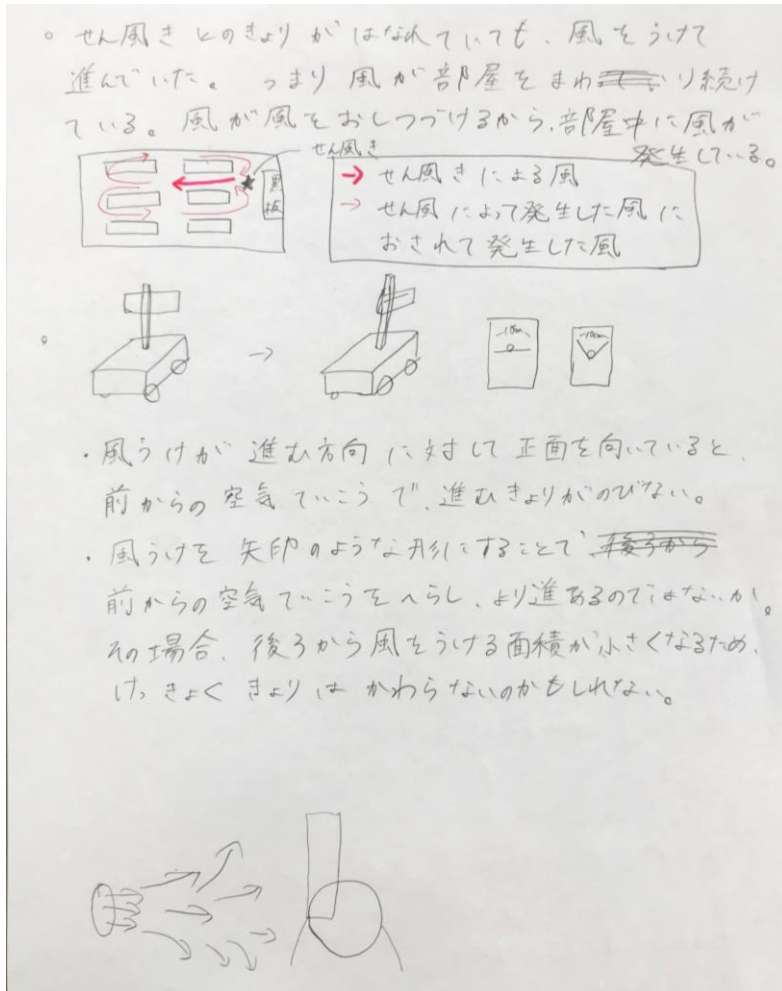 。せん風きとのきょりがはなれていても、風をうけて
進んでいた。つまり風が部屋をまわり続け
ている。風が風をおしつづけるから、部屋中に風が
発生している。
せん風き
黒板
→ せん風きによる風
→ せん風によって発生した風に
おされて発生した風
→
10cm
10cm
・風うけが進む方向に対して正面を向いていると、
前からの空気ていこうで、進むきょりがのびない。
・風うけを矢印のような形にすることで後ろから
前からの空気ていこうをへらし、より進あるのではないか。
その場合、後ろから風をうける面積が小さくなるため、
けっきょくきょりはかわらないのかもしれない。